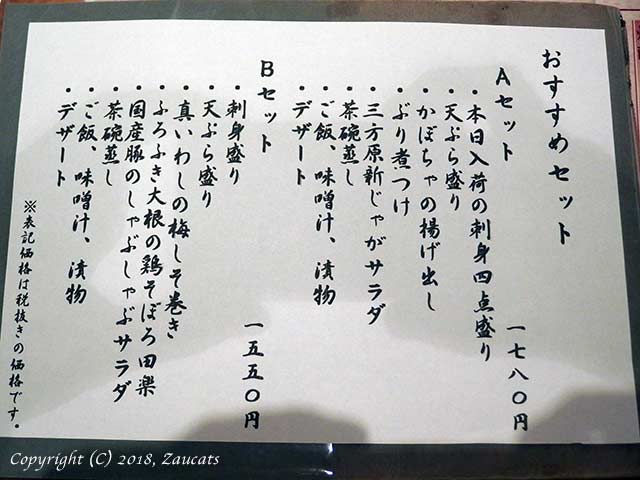 おすすめセット
Aセット 一七八〇円
・本日入荷の刺身四点盛り
・天ぷら盛り
・かぼちゃの揚げ出し
・ぶり煮つけ
・三方原新じゃがサラダ
・茶碗蒸し
・ご飯、味噌汁、漬物
・デザート
Bセット 一五五〇円
・刺身盛り
・天ぷら盛り
・真いわしの梅しそ巻き
・ふろふき大根の鶏そぼろ田楽
・国産豚のしゃぶしゃぶサラダ
・茶碗蒸し
・ご飯、味噌汁、漬物
・デザート
※表記価格は税抜きの価格です。
Copyright (C) 2018, Zaucats